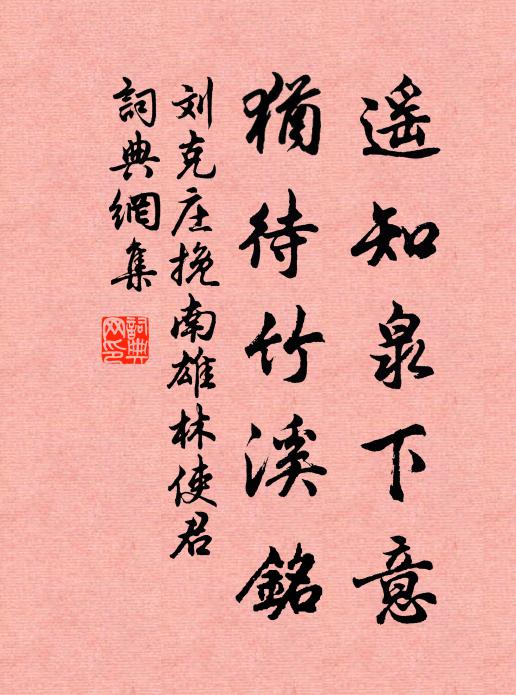 遥知泉下意
猶待竹溪銘
刘克庄挽南雄林使君
詞典網集
詞典网印